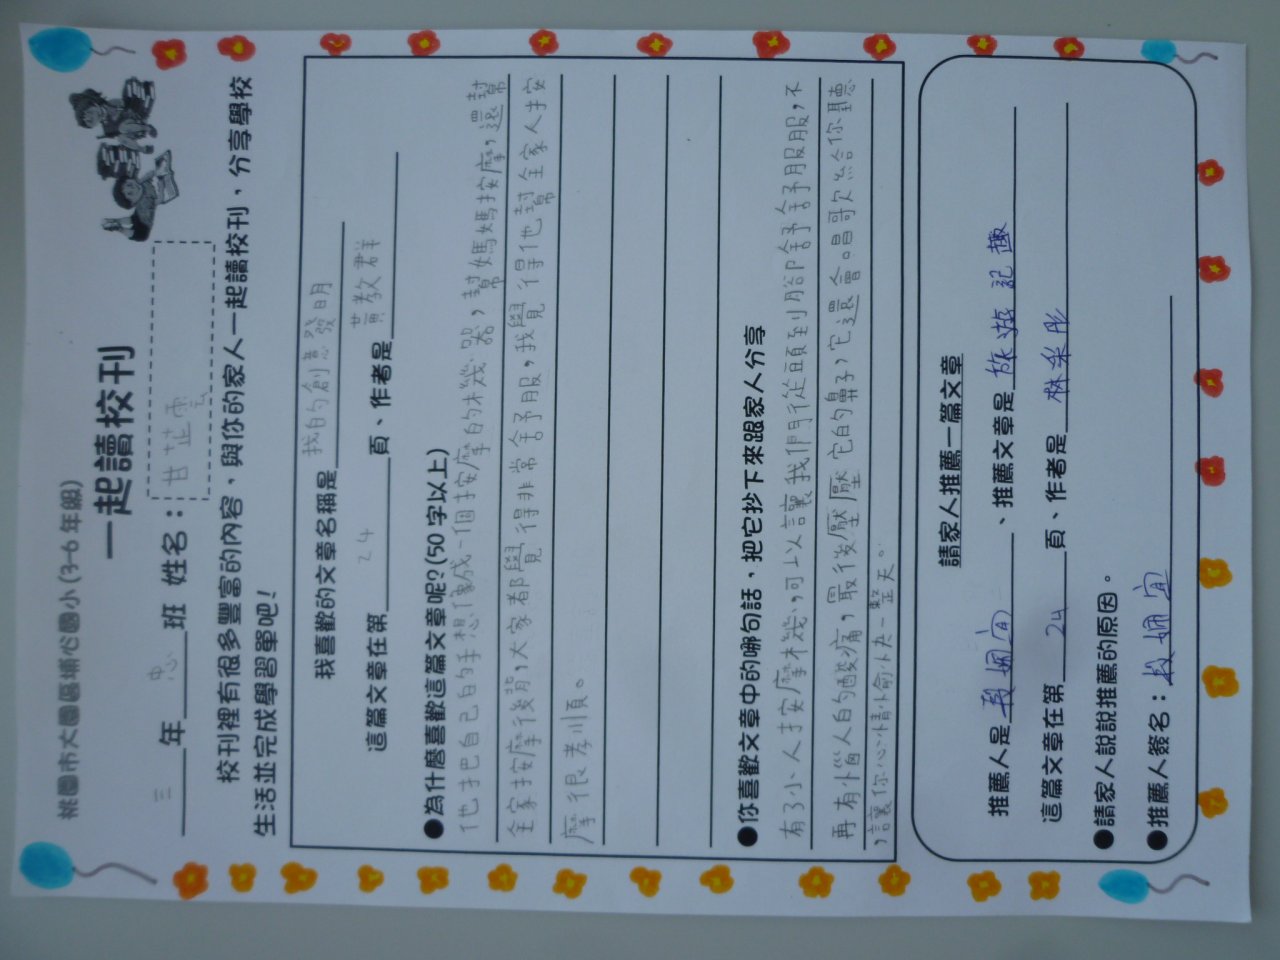 桃園市大園區埔心國小(3-6 年級)
一起讀校刊
三年 忠 班 姓名：甘芷雲
校刊裡有很多豐富的內容，與你的家人一起讀校刊，分享學校
生活並完成學習單吧！
我喜歡的文章名稱是 我的創意發明
這篇文章在第 24 頁、作者是 黃教群
●為什麼喜歡這篇文章呢?(50 字以上)
他把自己的手想像成一個按摩的機器，幫媽媽按摩，還幫
全家按摩後背，大家都覺得非常舒服，我覺得他幫全家人按
摩很孝順。
●你喜歡文章中的哪句話，把它抄下來跟家人分享
有了小人按摩機，可以讓我們從頭到腳舒舒服服，不
再有惱人的酸痛，最後壓壓它的鼻子，它還會唱歌給你聽
，讓你心情愉快一整天。
請家人推薦一篇文章
推薦人是 、推薦文章是 旅遊記趣
這篇文章在第 24 頁、作者是 林采彤
●請家人說說推薦的原因。
●推薦人簽名：